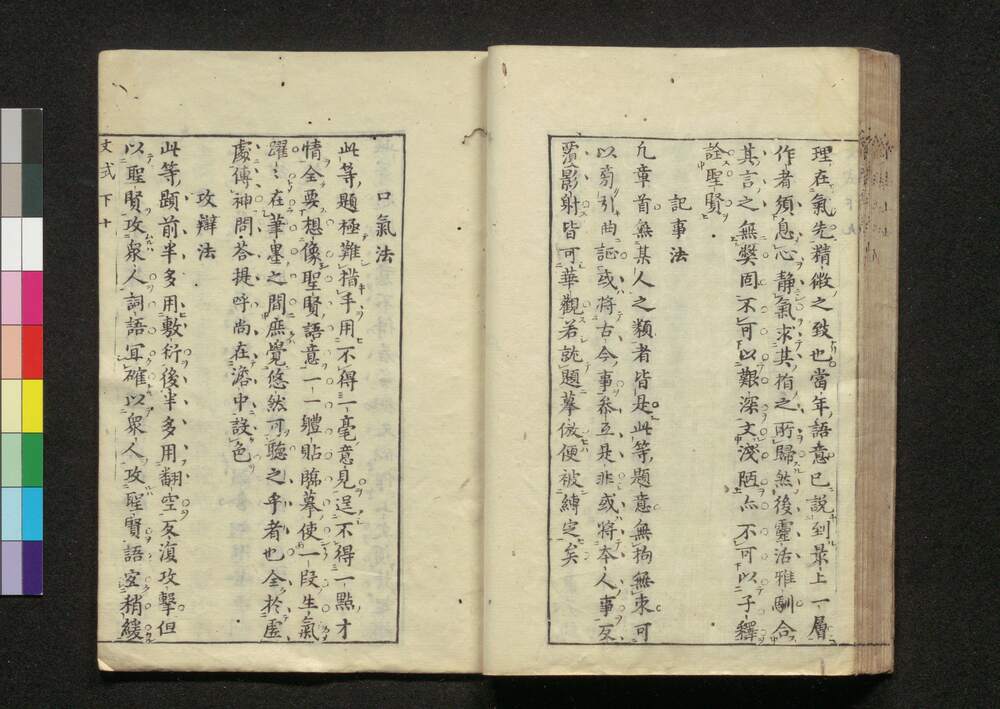 理在氣先精微之致也當年語意已説到最上一層
作者須息心静氣求其指之所歸然後靈活雅馴合
其言之無弊固不可以艱深文淺陋亦不可以子釋
詮聖賢
記事法
凡章首無某人之類者皆是此等題意無拘無束可
以旁引曲証或將古今事參互是非或將本人事互
影射皆可華觀若就題摹倣便被縛定矣
口氣法
此等題極難措手用不得一毫意見逞不得一點才
情全要想像聖賢語意一一體貼臨摹使一段生氣
躍〻在筆墨之間庶覺悠然可聽之乎者也全於虛
處傳神問荅提呼尚在澹中設色
攻辯法
此等題前半多用敷衍後半多用翻空反復攻擊但
以聖賢攻衆人詞語冝確以衆人攻聖賢語空稍緩
文式 下 十